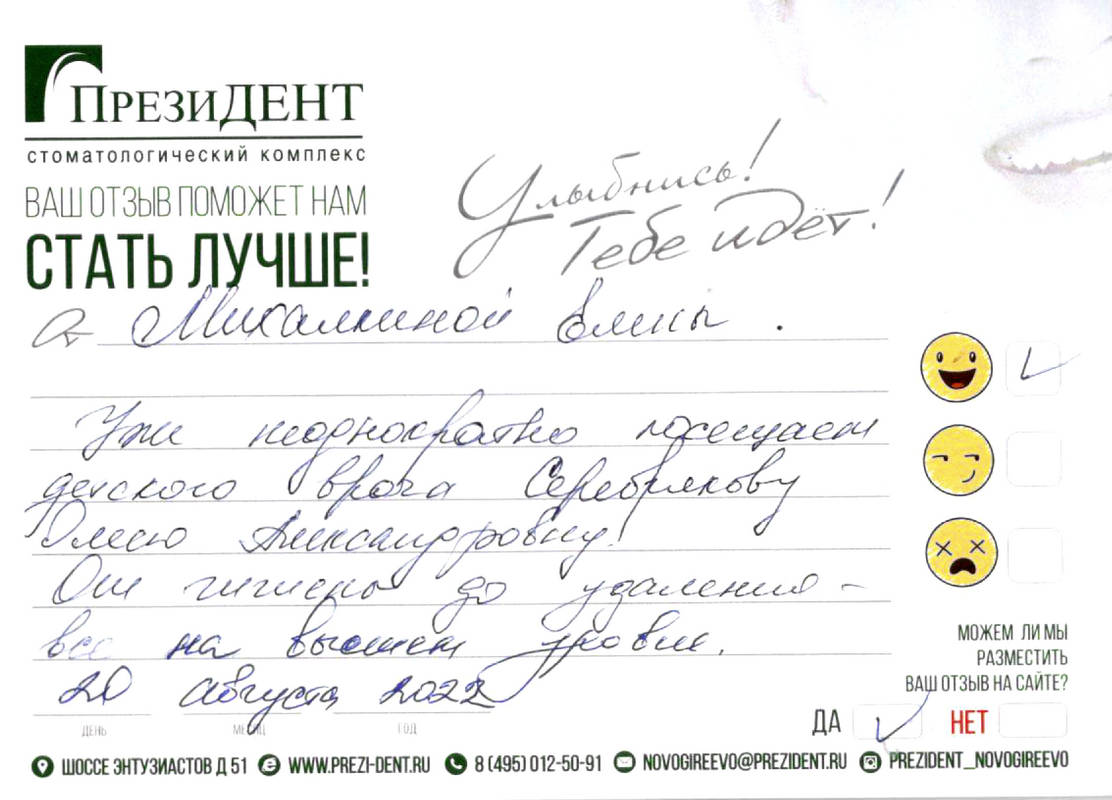 ПрезиДЕНТ
стоматологический комплекс
ВАШ ОТЗЫВ ПОМОЖЕТ НАМ
СТАТЬ ЛУЧШЕ!
Улыбнись!
Тебе идёт!
От Михалкиной Елены.
Уже неоднократно посещаем
детского врача Серебрякову
Олесю Александровну!
От гигиены до удаления -
все на высшем уровне.
20 августа 2022
ДЕНЬ МЕСЯЦ ГОД
МОЖЕМ ЛИ МЫ
РАЗМЕСТИТЬ
ВАШ ОТЗЫВ НА САЙТЕ?
ДА НЕТ
ШОССЕ ЭНТУЗИАСТОВ Д 51 WWW.PREZI-DENT.RU 8 (495) 012-50-91 NOVOGIREEVO@PREZIDENT.RU PREZIDENT_NOVOGIREEVO